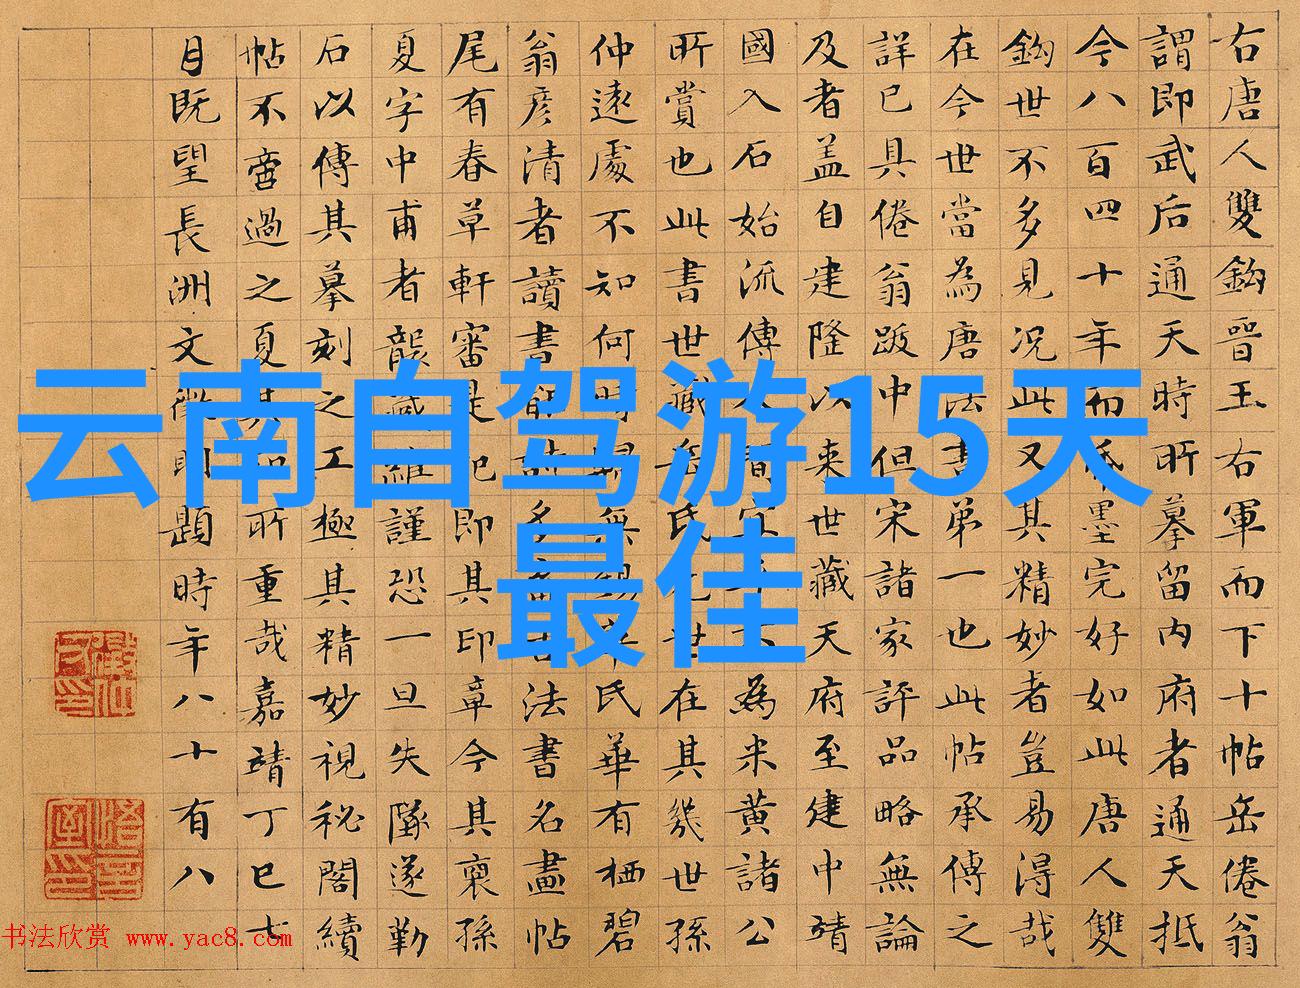 右唐人雙鈎晉王右軍而下十帖岳倦翁
謂即武后通天時所摹留內府者通天抵
今八百四十年而紙墨完好如此唐人雙
鈎世不多見況此又其精妙者豈易得哉
在今世當為唐法書第一也此帖承傳之
詳已具倦翁跋中但宋諸家評品略無論
及者蓋自建隆以来世藏天府至建中靖
國入石始流傳人間宜其不為米黃諸公
所賞也此書世藏岳氏元世在其幾世孫
仲遠處不知何時歸無錫華氏華有栖碧
翁彦清者讀書能詩多畜古法書名畫帖
尾有春草軒審定記即其印章今其裔孫
夏字中甫者襲藏維謹恐一旦失墜遂勤
石以傳其摹刻之工極其精妙視秘閣續
帖不啻過之夏其知所重哉嘉靖丁巳七
月既望長洲文徵明題時年八十有八
云南自驾游15天
最佳
书法欣赏 www.yac8.com